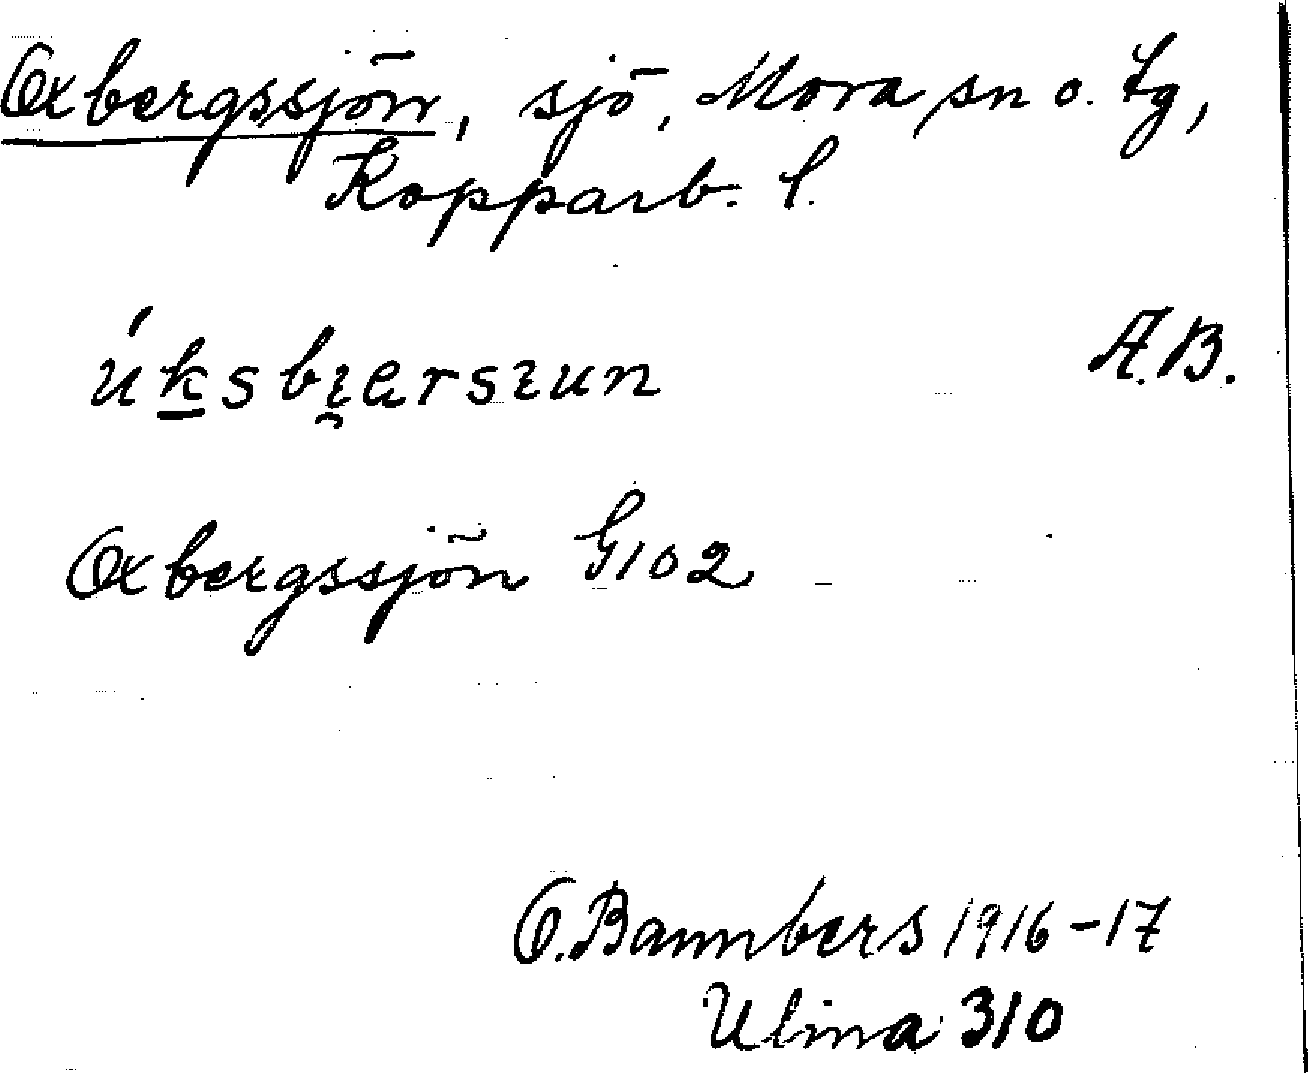 Oxbergssjön, sjö, Mora sn o. tg,
Kopparb. l.
úksbı̯ersɪun A.B.
Oxbergssjön G102
O. Bannbers 1916-17
Ulma 310